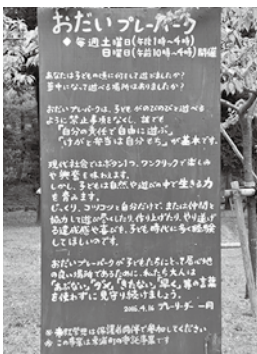 おだいプレーパーク
◆毎週土曜日(午後1時〜4時)
日曜日(午前10時〜4時)開催
あなたは子どもの頃に何をして遊びましたか?
夢中になって遊べる場所はありましたか?
おだいプレーパークは、子どもがのびのびと遊べる
ように禁止事項をなくし、誰でも
「自分の責任で自由に遊ぶ」
「けがと弁当は自分もち」が基本です。
現代社会ではボタン1つ、ワンクリックで楽しみ
や興奮を味わえます。
しかし、子どもは自然や遊びの中で生きる力
を育みます。
じっくり、コツコツと自分だけで、または仲間と
協力して遊び尽くしたり、作り上げたり、やり遂げ
る達成感や喜びを、子ども時代に多く経験
してほしいのです。
おだいプレーパークが子どもたちにとって居心地
の良い場所であるために、私たち大人は
「あぶない」「ダメ」「きたない」「早く」等の言葉
を使わずに見守り続けましょう。
2016.4.16 プレーリーダー一同
※未就学児は保護者同伴で参加してください